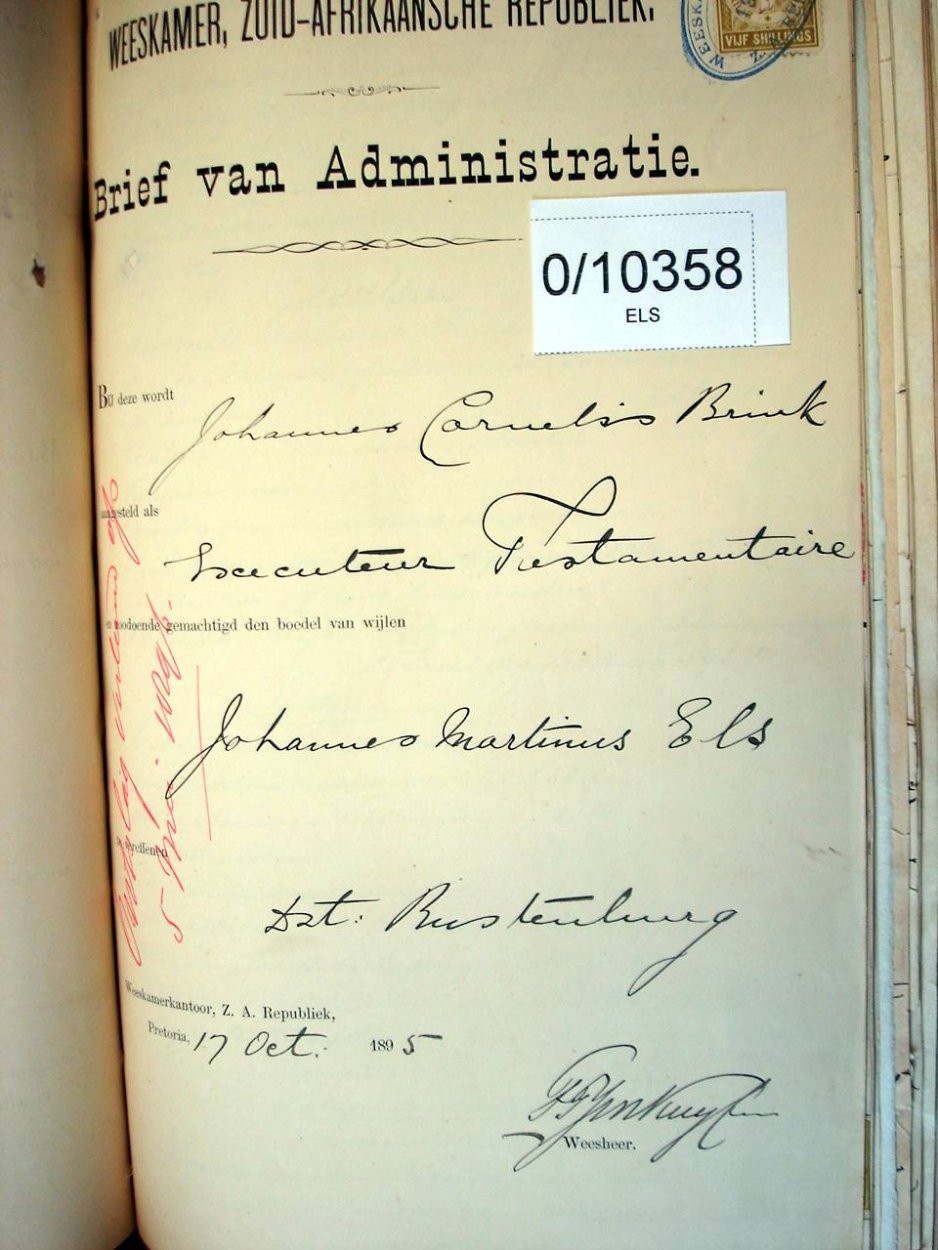 WEESKAMER, ZUID-AFRIKAANSCHE REPUBLIEK.
WEESKA
Z.
VIJF SHILLINGS
Brief van Administratie.
0/10358
ELS
Bij deze wordt Johannes Cornelis Brink
aangesteld als
Executeur Testamentaire
zoodoende gemachtigd den boedel van wijlen
Johannes Martinus Els
te vereffenen
Dst: Rustenburg
Weeskamerkantoor, Z. A. Republiek,
Pretoria, 17 Oct. 1895
Weesheer.
5